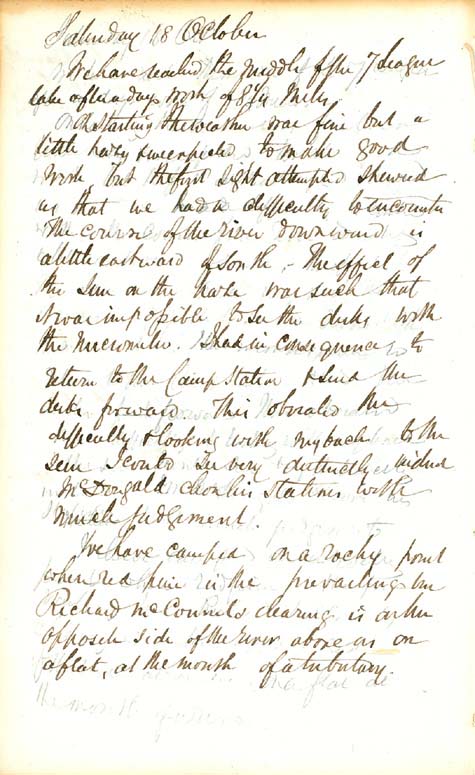 Saturday 18 October
We have reached the middle of the 7 League
lake after a days work of 9¼ Miles,
On starting the weather was fine but a
little hazy & we expected to make good
work but the first sight attempted shewed
us that we had a difficulty to encounter
The course of the river downward is
a little eastward of South, - The effect of
the sun on the haze was such that
it was impossible to see the disks with
the micrometer. I had in consequence to
return to the Camp Station & send the
disks forward This obviated the
difficulty & looking with my back to the
sun I could see very distinctly indeed
McDougald chose his stations with
much judgement.
We have camped on a rocky point
where red pine is the prevailing tim
Richard McConnels clearing is on the
opposite side of the river above us on
a flat, at the mouth of a tributary.